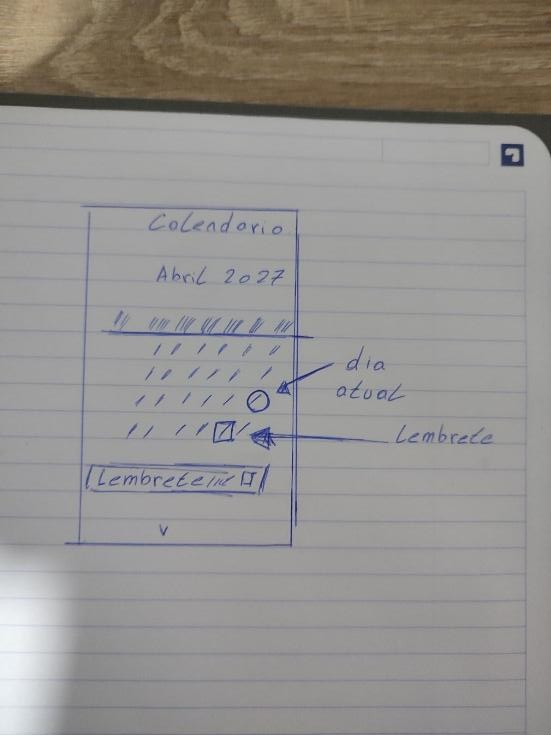 Calendario
Abril 2027
dia
atual
Lembrete
Lembrete